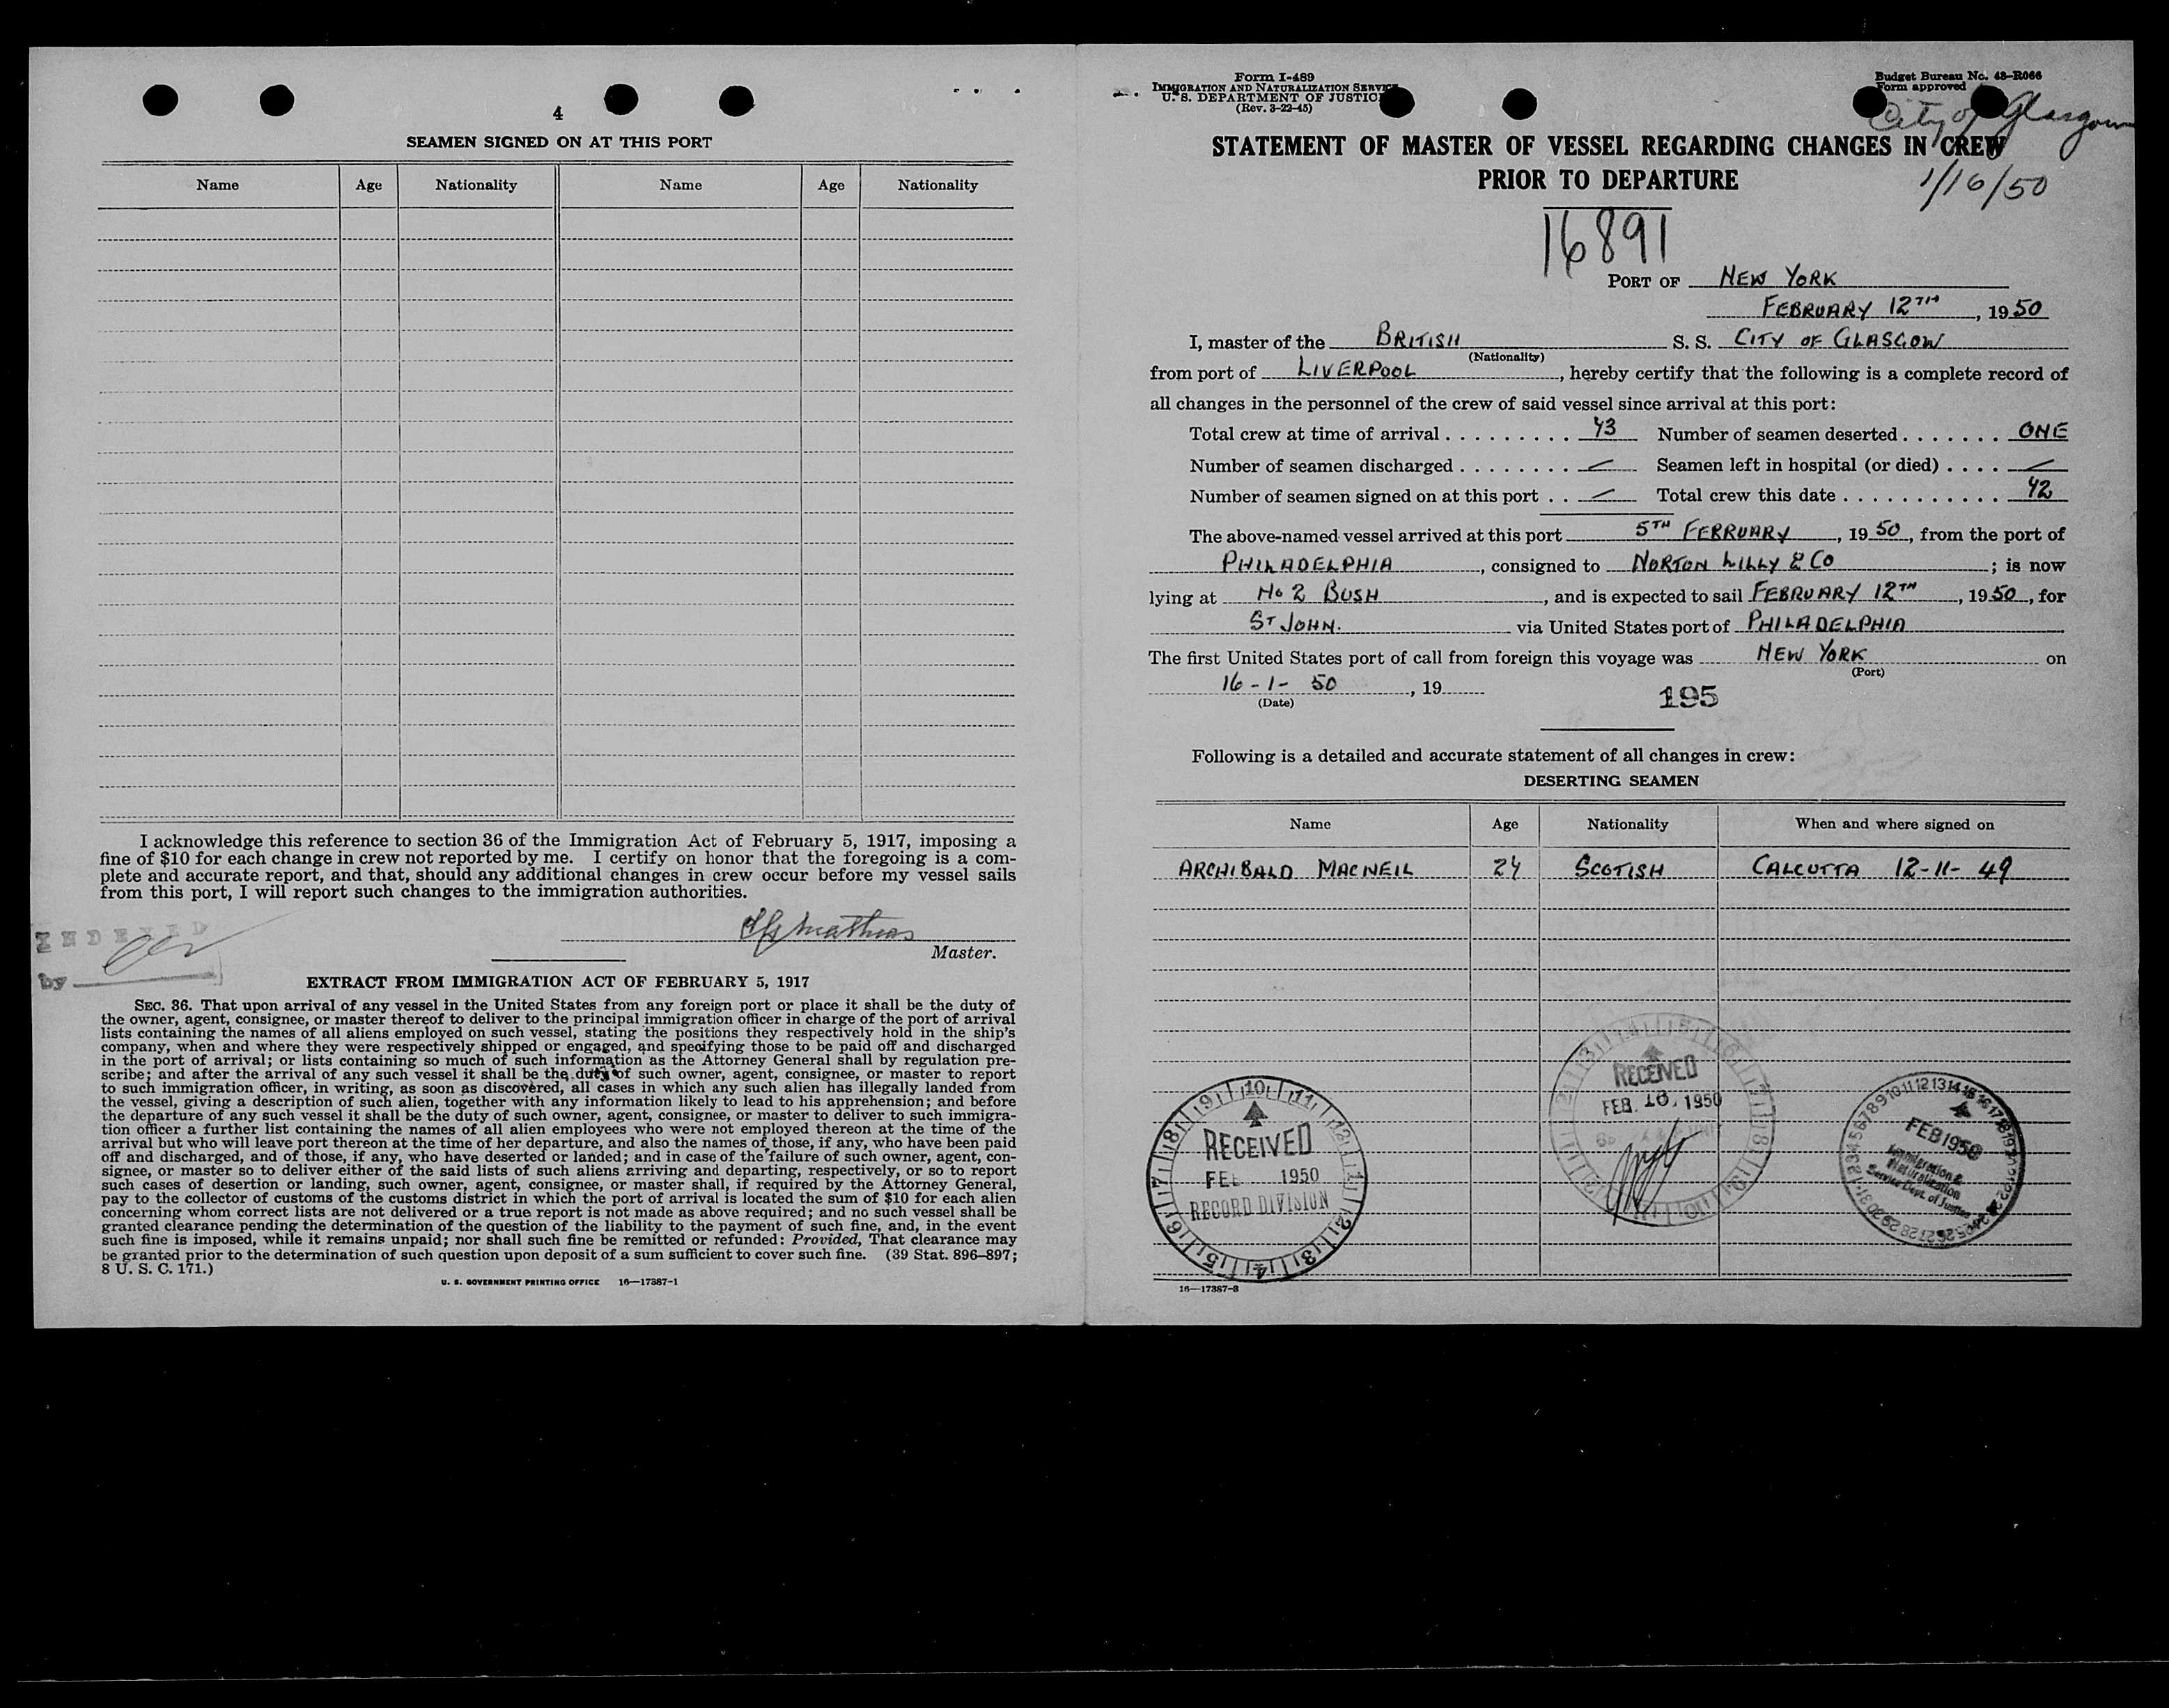 4
SEAMEN SIGNED ON AT THIS PORT
Name Age Nationality Name Age Nationality
I acknowledge this reference to section 36 of the Immigration Act of February 5, 1917, imposing a
fine of $10 for each change in crew not reported by me. I certify on honor that the foregoing is a com-
plete and accurate report, and that, should any additional changes in crew occur before my vessel sails
from this port, I will report such changes to the immigration authorities.
INDEXED
by
Master.
EXTRACT FROM IMMIGRATION ACT OF FEBRUARY 5, 1917
SEC. 36. That upon arrival of any vessel in the United States from any foreign port or place it shall be the duty of
the owner, agent, consignee, or master thereof to deliver to the principal immigration officer in charge of the port of arrival
lists containing the names of all aliens employed on such vessel, stating the positions they respectively hold in the ship's
company, when and where they were respectively shipped or engaged, and specifying those to be paid off and discharged
in the port of arrival; or lists containing so much of such information as the Attorney General shall by regulation pre-
scribe; and after the arrival of any such vessel it shall be the duty of such owner, agent, consignee, or master to report
to such immigration officer, in writing, as soon as discovered, all cases in which any such alien has illegally landed from
the vessel, giving a description of such alien, together with any information likely to lead to his apprehension; and before
the departure of any such vessel it shall be the duty of such owner, agent, consignee, or master to deliver to such immigra-
tion officer a further list containing the names of all alien employees who were not employed thereon at the time of the
arrival but who will leave port thereon at the time of her departure, and also the names of those, if any, who have been paid
off and discharged, and of those, if any, who have deserted or landed; and in case of the failure of such owner, agent, con-
signee, or master so to deliver either of the said lists of such aliens arriving and departing, respectively, or so to report
such cases of desertion or landing, such owner, agent, consignee, or master shall, if required by the Attorney General,
pay to the collector of customs of the customs district in which the port of arrival is located the sum of $10 for each alien
concerning whom correct lists are not delivered or a true report is not made as above required; and no such vessel shall be
granted clearance pending the determination of the question of the liability to the payment of such fine, and, in the event
such fine is imposed, while it remains unpaid; nor shall such fine be remitted or refunded: Provided, That clearance may
be granted prior to the determination of such question upon deposit of a sum sufficient to cover such fine. (39 Stat. 896–897;
8 U. S. C. 171.)
U. S. GOVERNMENT PRINTING OFFICE 16—17387-1
Form I-489
IMMIGRATION AND NATURALIZATION SERVICE
U. S. DEPARTMENT OF JUSTICE
(Rev. 3-22-45)
Budget Bureau No. 43-R066
Form approved
City of Glasgow
STATEMENT OF MASTER OF VESSEL REGARDING CHANGES IN CREW
PRIOR TO DEPARTURE
1/16/50
16891
PORT OF NEW YORK
FEBRUARY 12TH, 1950
I, master of the BRITISH S. S. CITY OF GLASGOW
(Nationality)
from port of LIVERPOOL, hereby certify that the following is a complete record of
all changes in the personnel of the crew of said vessel since arrival at this port:
Total crew at time of arrival . . . . . . . . . 43 Number of seamen deserted . . . . . . . ONE
Number of seamen discharged . . . . . . . . — Seamen left in hospital (or died) . . . . —
Number of seamen signed on at this port . . — Total crew this date . . . . . . . . . . . 42
The above-named vessel arrived at this port 5TH FEBRUARY, 1950, from the port of
PHILADELPHIA, consigned to NORTON LILLY & CO; is now
lying at No 2 BUSH, and is expected to sail FEBRUARY 12TH, 1950, for
ST JOHN. via United States port of PHILADELPHIA
The first United States port of call from foreign this voyage was NEW YORK on
(Port)
16-1-50, 19
(Date)
195
Following is a detailed and accurate statement of all changes in crew:
DESERTING SEAMEN
Name Age Nationality When and where signed on
ARCHIBALD MACNEIL 24 SCOTISH CALCUTTA 12-11-49
RECEIVED
FEB 1950
RECORD DIVISION
RECEIVED
FEB. 16. 1950
FEB 1950
Immigration &
Naturalization
Service Dept. of Justice
16—17387-3